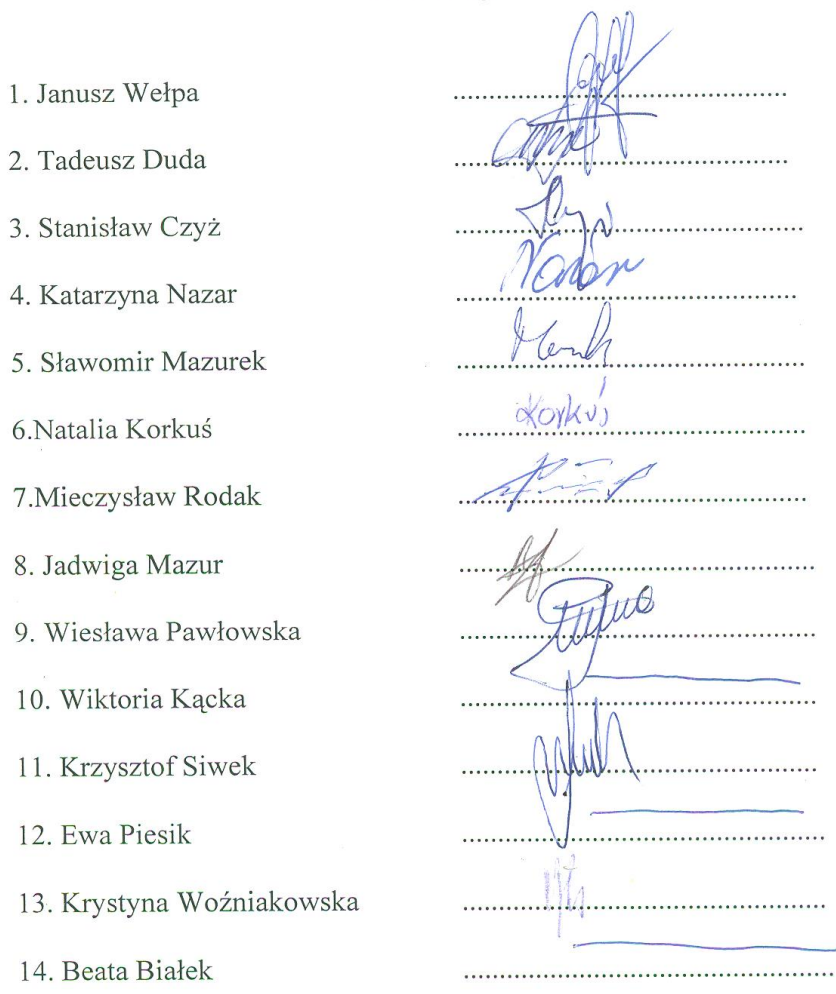 1. Janusz Wełpa ................................................
2. Tadeusz Duda ................................................
3. Stanisław Czyż ................................................
4. Katarzyna Nazar ................................................
5. Sławomir Mazurek ................................................
6.Natalia Korkuś ................................................ Korkuś
7.Mieczysław Rodak ................................................
8. Jadwiga Mazur ................................................
9. Wiesława Pawłowska ................................................
10. Wiktoria Kącka ................................................
11. Krzysztof Siwek ................................................
12. Ewa Piesik ................................................
13. Krystyna Woźniakowska ................................................
14. Beata Białek ................................................